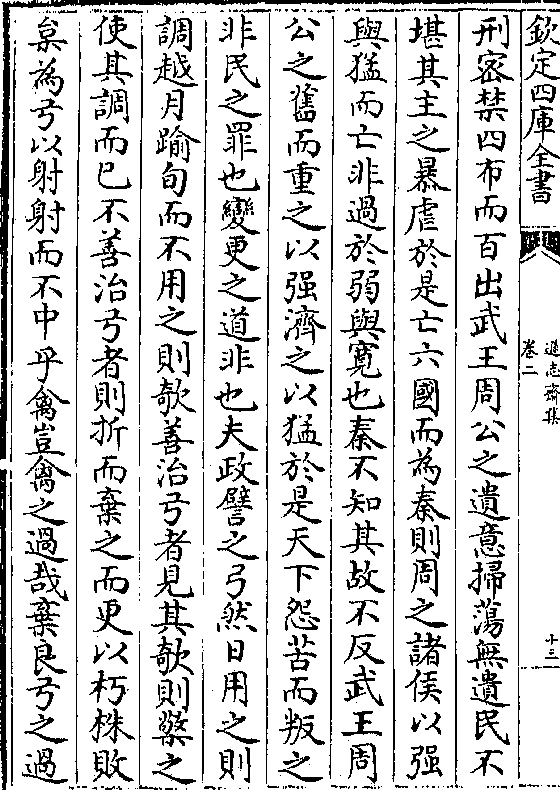 欽定四庫全書
遜志齋集
卷二
十三
刑密禁四布而百出武王周公之遺意掃蕩無遺民不
堪其主之暴虐於是亡六國而為秦則周之諸侯以强
與猛而亡非過於弱與寛也秦不知其故不反武王周
公之舊而重之以强濟之以猛於是天下怨苦而叛之
非民之罪也變更之道非也夫政譬之弓然日用之則
調越月踰旬而不用之則欹善治弓者見其欹則檠之
使其調而已不善治弓者則折而棄之而更以朽株敗
枲為弓以射射而不中乎禽豈禽之過哉棄良弓之過